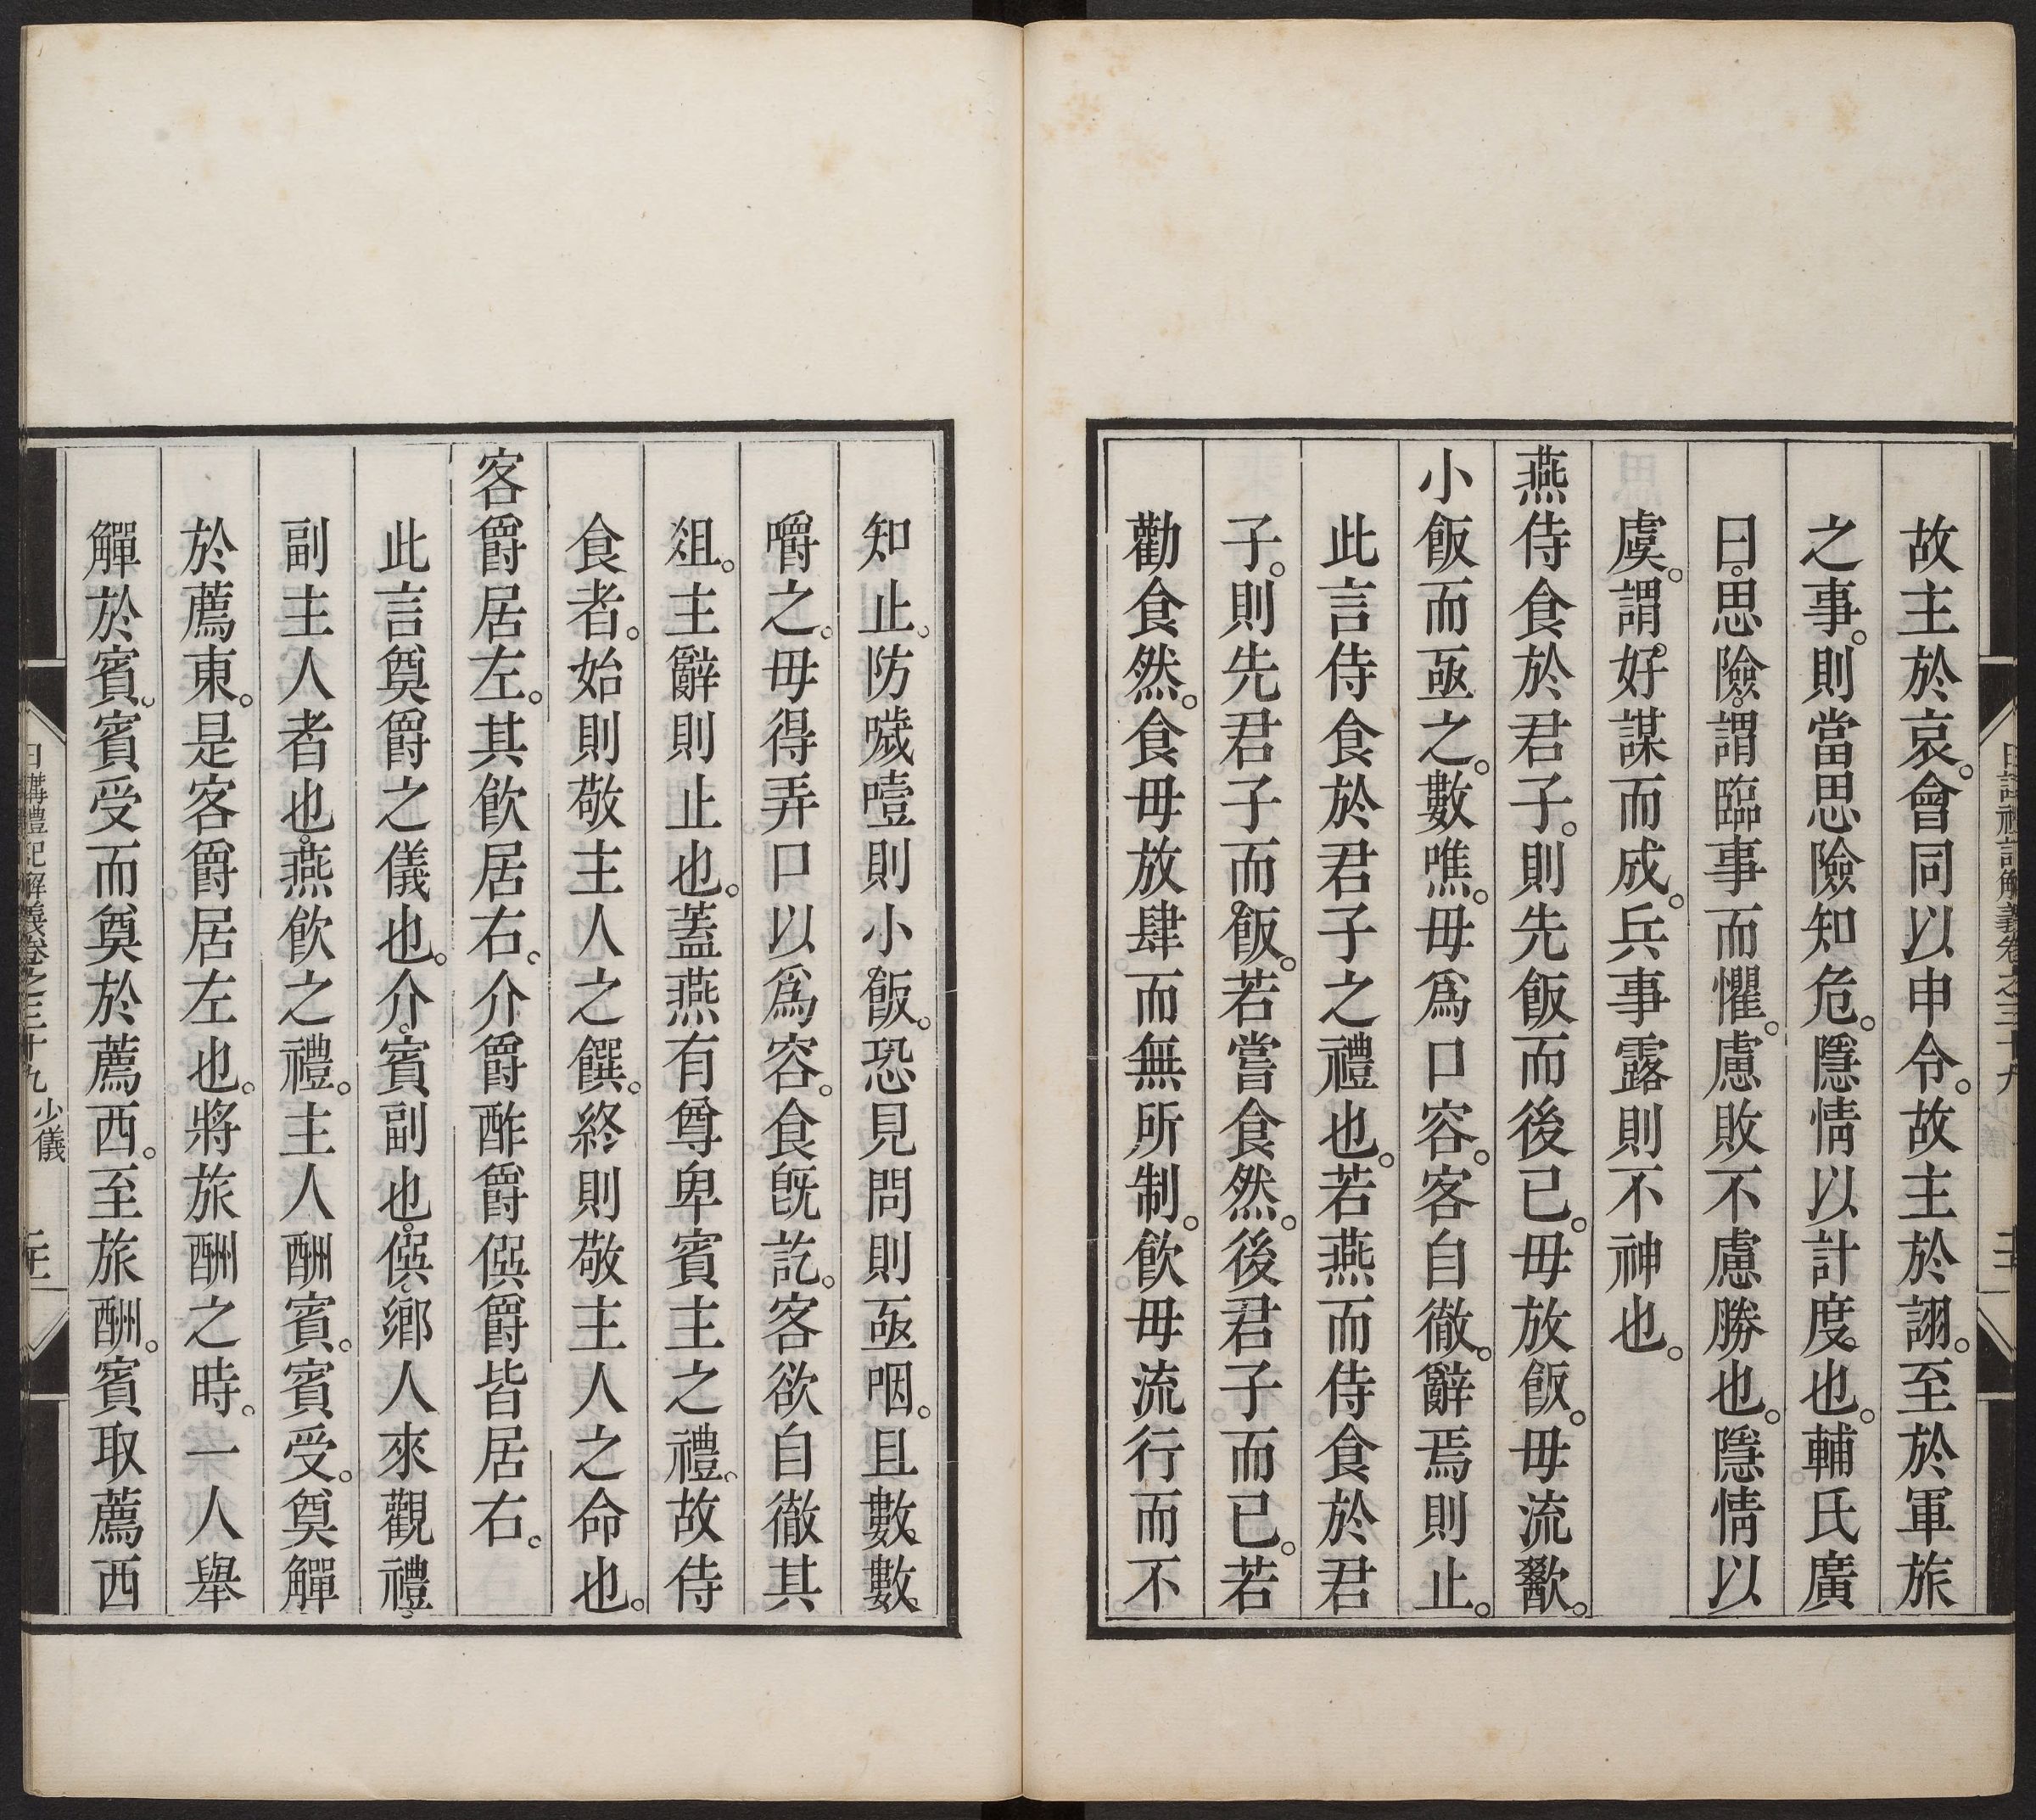 故主於哀。會同以申令。故主於詡。至於軍旅
之事。則當思險知危。隱情以計度也。輔氏廣
曰。思險。謂臨事而懼。慮敗不慮勝也。隱情以
虞。謂。好謀而成。兵事露則不神也。
燕侍食於君子。則先飯而後已。毋放飯。毋流歠。
小飯而亟之。數噍。毋爲口容。客自徹。辭焉則止。
此言侍食於君子之禮也。若燕而侍食於君
子。則先君子而飯。若嘗食然。後君子而已。若
勸食然。食毋放肆而無所制。飲毋流行而不
知止。防噦噎則小飯。恐見問則亟咽。且數數。
嚼之。毋得弄口以爲容。食旣訖。客欲自徹其
俎。主辭則止也。蓋燕有尊卑賓主之禮。故侍
食者。始則敬主人之饌。終則敬主人之命也。
客爵居左。其飮居右。介爵酢爵僎爵皆居右。
此言奠爵之儀也。介。賓副也。僎。鄉人來觀禮。
副主人者也。燕飮之禮。主人酬賓。賓受。奠觶
於薦東。是客爵居左也。將旅酬之時。一人舉
觶於賓。賓受而奠於薦西。至旅酬。賓取薦西
日講禮記解義卷之三十九 少儀 二十一